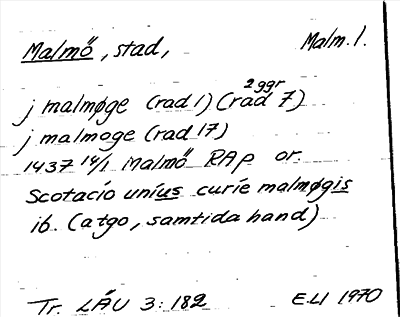 Malmö, stad, Malm. l.
j malmøge (rad 1) (rad 7) 2 ggr
j malmoge (rad 17)
1437 14/1 Malmö RAp or.
Scotacio unius curie malmøgis
ib. (atgo, samtida hand)
Tr. LÄU 3:182 E.LI 1970